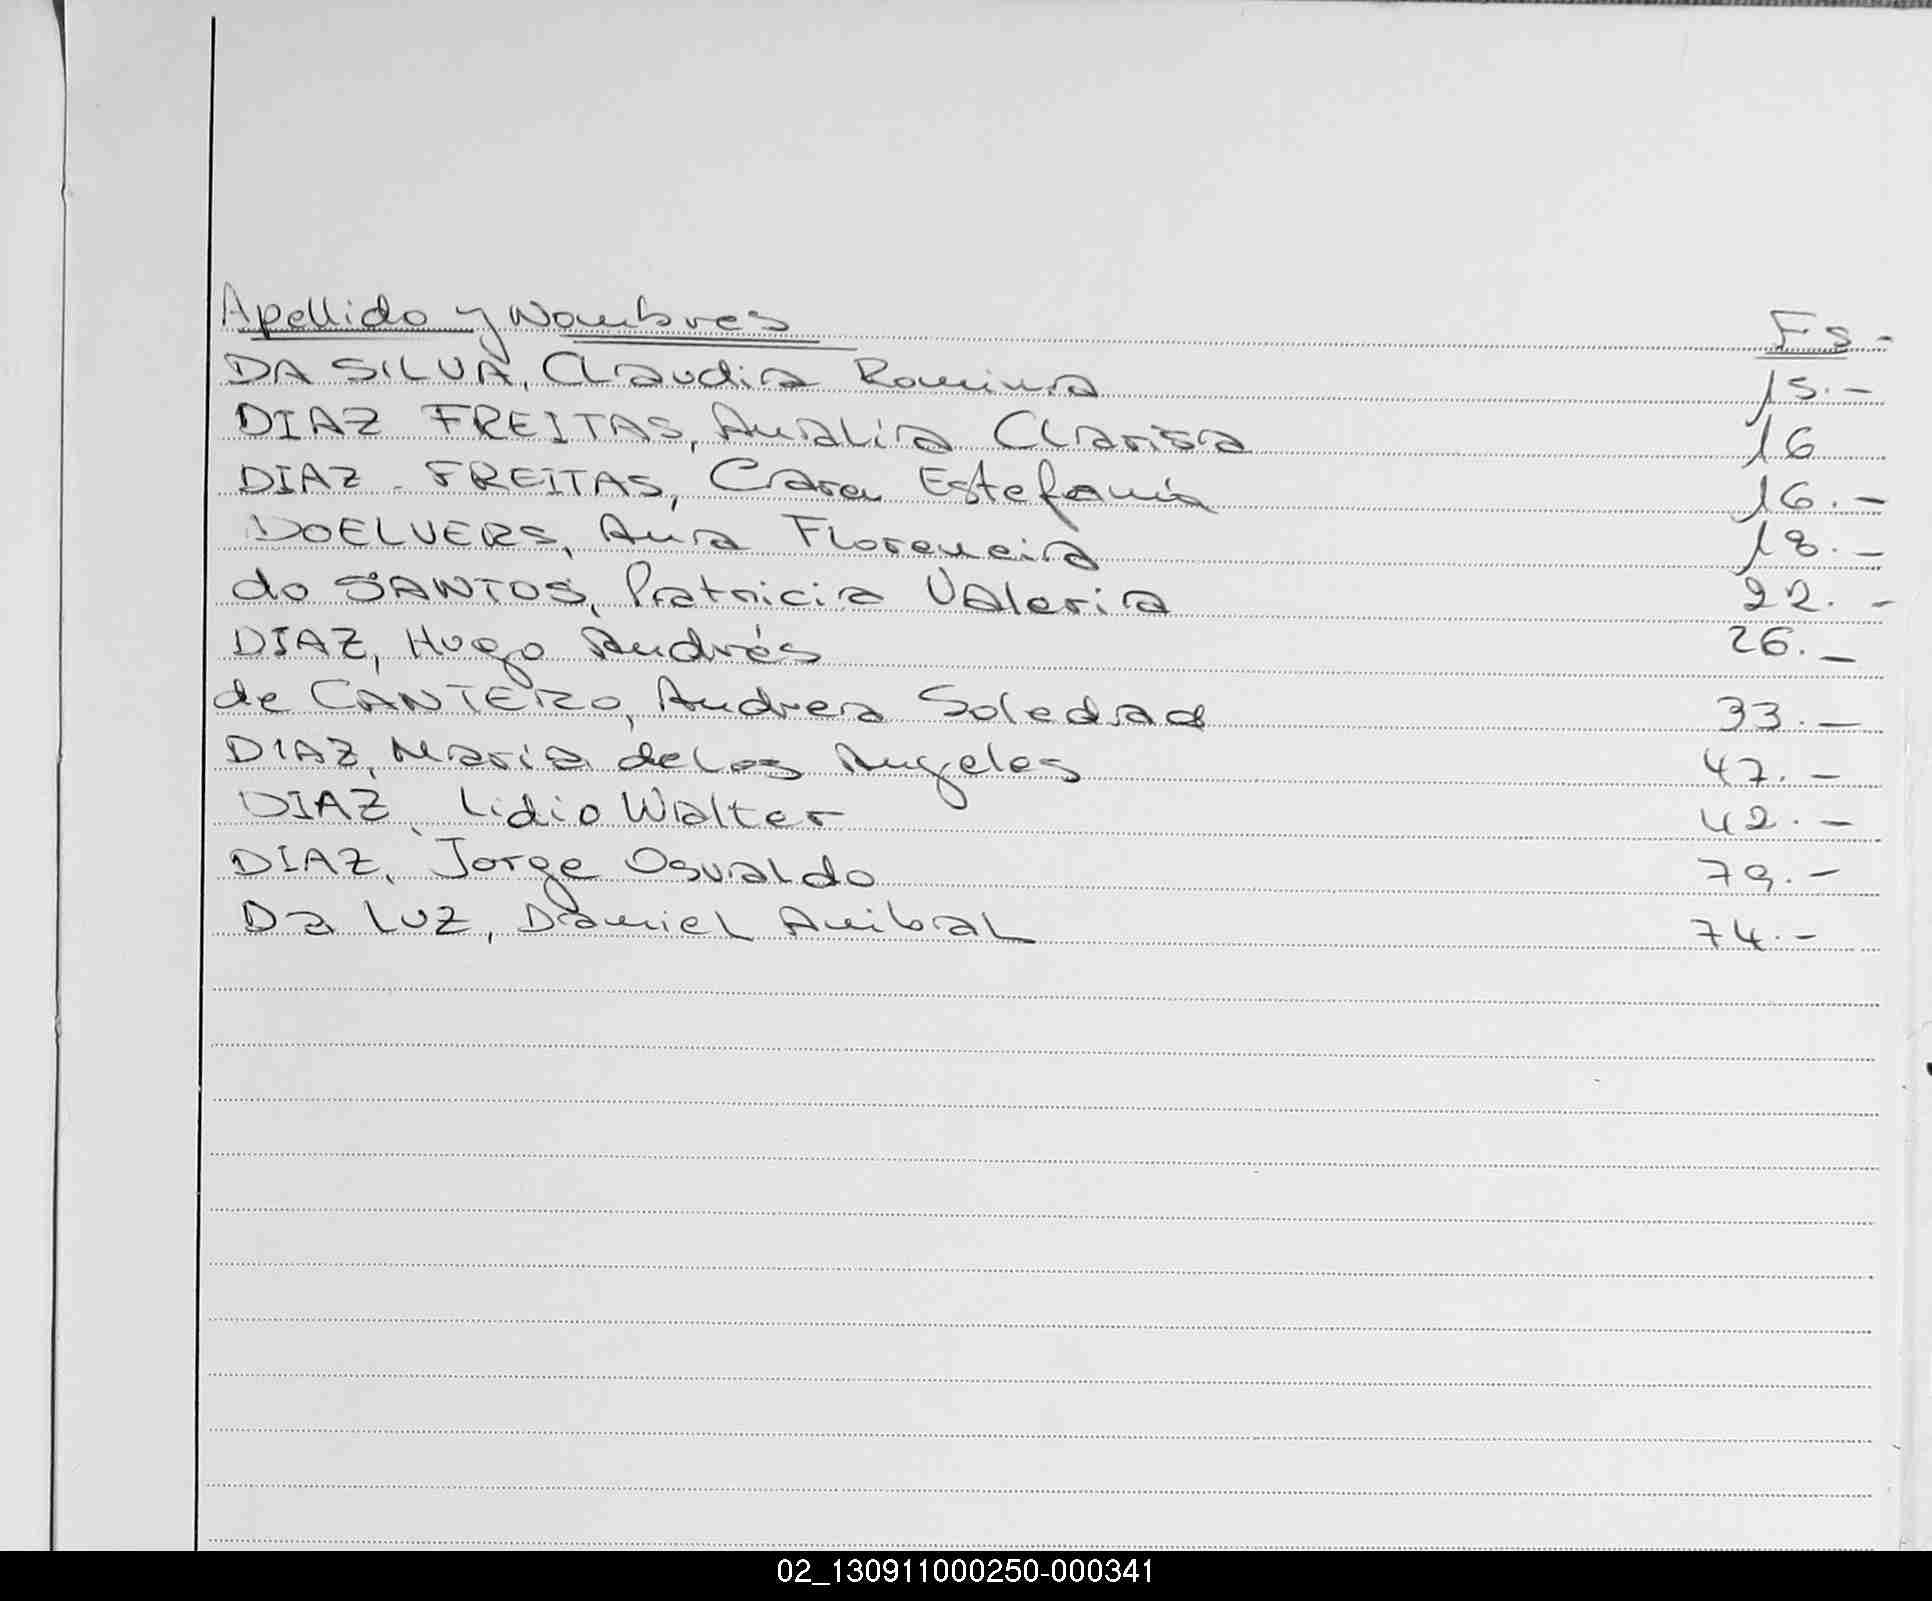 Apellido y Nombres Fs-
DA SILVA, Claudia Romina 15.-
DIAZ FREITAS, Analía Clarisa 16
DIAZ - FREITAS, Cara Estefanía 16.-
DOELVERS, Ana Florencia 18.-
do SANTOS, Patricia Valeria 22.-
DIAZ, Hugo Andrés 26.-
de CANTERO, Andrea Soledad 33.-
DIAZ, María de Los Angeles 47.-
DIAZ, Lidio Walter 42.-
DIAZ, Jorge Osvaldo 79.-
Da LUZ, Daniel Anibal 74.-
02_130911000250-000341